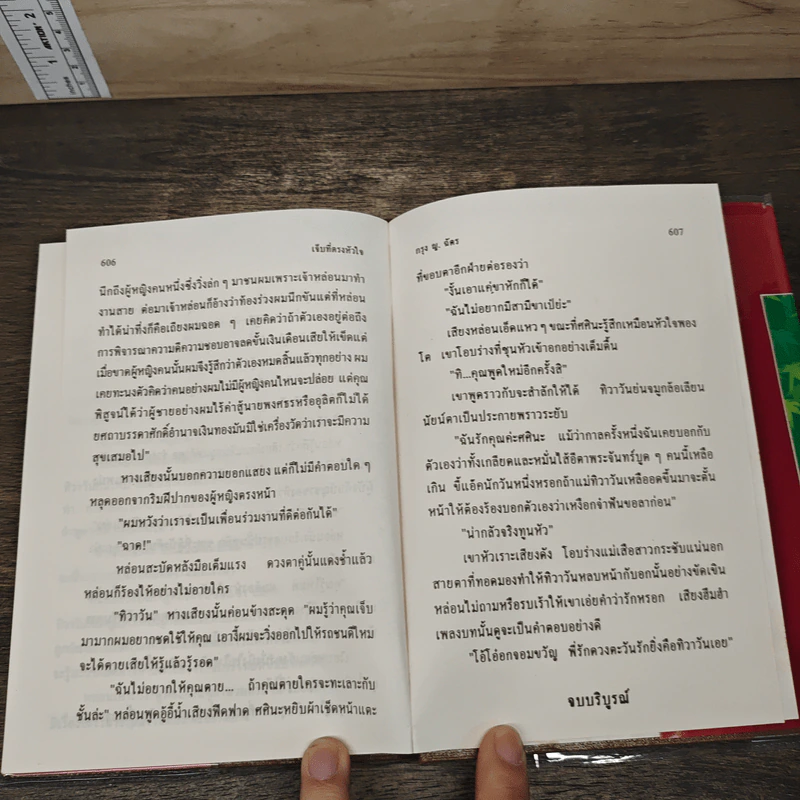 606
เจ็บที่ตรงหัวใจ
นึกถึงผู้หญิงคนหนึ่งซึ่งวิ่งล่ก ๆ มาชนผมเพราะเจ้าหล่อนมาทำ
งานสาย ต่อมาเจ้าหล่อนก็อ้างว่าท้องร่วงผมนึกขันแต่ที่หล่อน
ทำได้น่าทึ่งก็คือเถียงผมฉอด ๆ เคยคิดว่าถ้าตัวเองอยู่ต่อถึง
การพิจารณาความดีความชอบอาจลดขั้นเงินเดือนเสียให้เข็ดแต่
เมื่อขาดผู้หญิงคนนั้นผมจึงรู้สึกว่าตัวเองหมดสิ้นแล้วทุกอย่าง ผม
เคยทะนงตัวคิดว่าคนอย่างผมไม่มีผู้หญิงคนไหนจะปล่อย แต่คุณ
พิสูจน์ได้ว่าผู้ชายอย่างผมไร้ค่าสู้นายพงศธรหรืออุลิตก็ไม่ได้
ยศถาบรรดาศักดิ์อำนาจเงินทองมันมิใช่เครื่องวัดว่าเราจะมีความ
สุขเสมอไป"
หางเสียงนั้นบอกความยอกแสยง แต่ก็ไม่มีคำตอบใด ๆ
หลุดออกจากริมฝีปากของผู้หญิงตรงหน้า
"ผมหวังว่าเราจะเป็นเพื่อนร่วมงานที่ดีต่อกันได้"
"ฉาด!"
หล่อนสะบัดหลังมือเต็มแรง ดวงตาคู่นั้นแดงช้ำแล้ว
หล่อนก็ร้องไห้อย่างไม่อายใคร
"ทิวาวัน" หางเสียงนั้นค่อนข้างสะดุด "ผมรู้ว่าคุณเจ็บ
มามากผมอยากชดใช้ให้คุณ เอางี้ผมจะวิ่งออกไปให้รถชนดีไหม
จะได้ตายเสียให้รู้แล้วรู้รอด"
"ฉันไม่อยากให้คุณตาย... ถ้าคุณตายใครจะทะเลาะกับ
ชั้นล่ะ" หล่อนพูดอู้อี้น้ำเสียงฟืดฟาด ศศินะหยิบผ้าเช็ดหน้าแตะ
กรุง ญ. ฉัตร
607
ที่ขอบตาอีกฝ่ายต่อรองว่า
"งั้นเอาแค่ขาหักก็ได้"
"ฉันไม่อยากมีสามีขาเป๋ย่ะ"
เสียงหล่อนเอ็ดแหว ๆ ขณะที่ศศินะรู้สึกเหมือนหัวใจพอง
โต เขาโอบร่างที่ซุนหัวเข้าอกอย่างเต็มตื้น
"ทิ...คุณพูดใหม่อีกครั้งสิ"
เขาพูดราวกับจะสำลักให้ได้ ทิวาวันย่นจมูกล้อเลียน
นัยน์ตาเป็นประกายพราวระยับ
"ฉันรักคุณค่ะศศินะ แม้ว่ากาลครั้งหนึ่งฉันเคยบอกกับ
ตัวเองว่าทั้งเกลียดและหมั่นไส้อีตาพระจันทร์บูด ๆ คนนี้เหลือ
เกิน ขี้แอ็คนักวันหนึ่งหรอกถ้าแม่ทิวาวันเหลืออดขึ้นมาจะตั้น
หน้าให้ต้องร้องบอกตัวเองว่าเหงือกจ๋าฟันขอลาก่อน"
"น่ากลัวจริงทูนหัว"
เขาหัวเราะเสียงดัง โอบร่างแม่เสือสาวกระชับแน่นอก
สายตาที่ทอดมองทำให้ทิวาวันหลบหน้ากับอกนั้นอย่างขัดเขิน
หล่อนไม่ถามหรือรบเร้าให้เขาเอ่ยคำว่ารักหรอก เสียงฮึมฮำ
เพลงบทนั้นดูจะเป็นคำตอบอย่างดี
"โอ้โอ๋อกจอมขวัญ พี่รักดวงตะวันรักยิ่งคือทิวาวันเอย"
จบบริบูรณ์